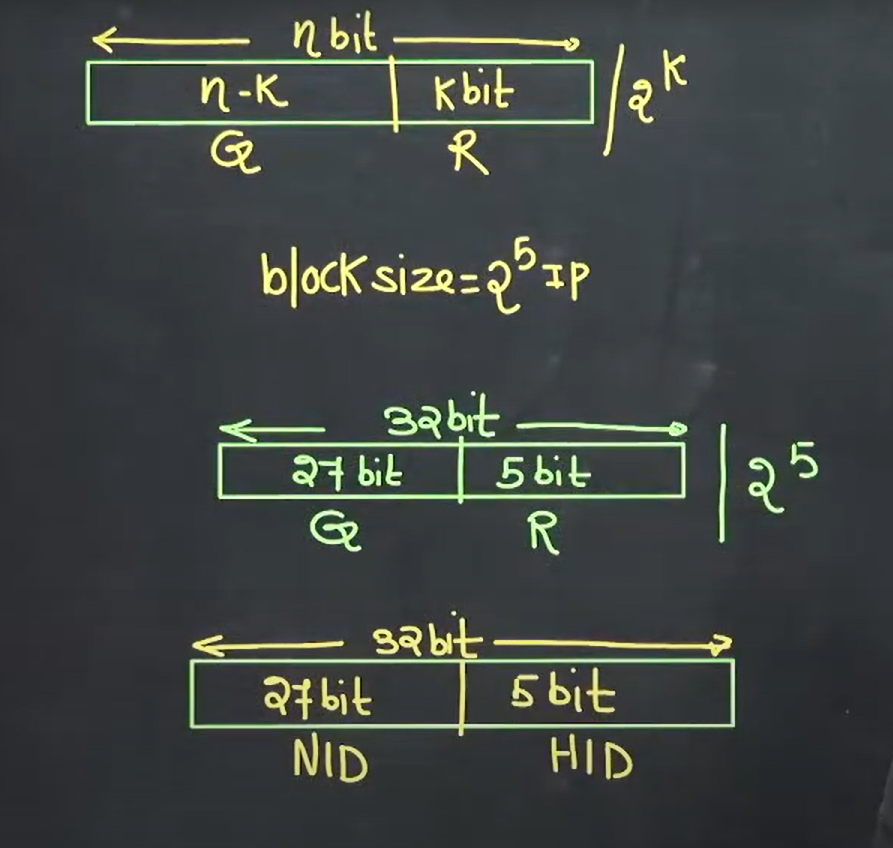 n bit
n-K K bit /2^K
Q R
block size=2^5 IP
32bit
27 bit 5 bit | 2^5
Q R
32bit
27bit 5 bit
NID HID